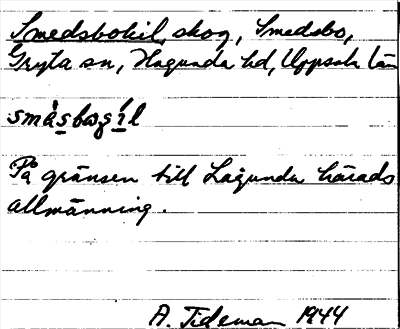 Smedsbokil, skog, Smedsbo,
Gryta sn, Hagunda hd, Uppsala län
På gränsen till Lagunda härads
allmänning.
A. Tideman 1944